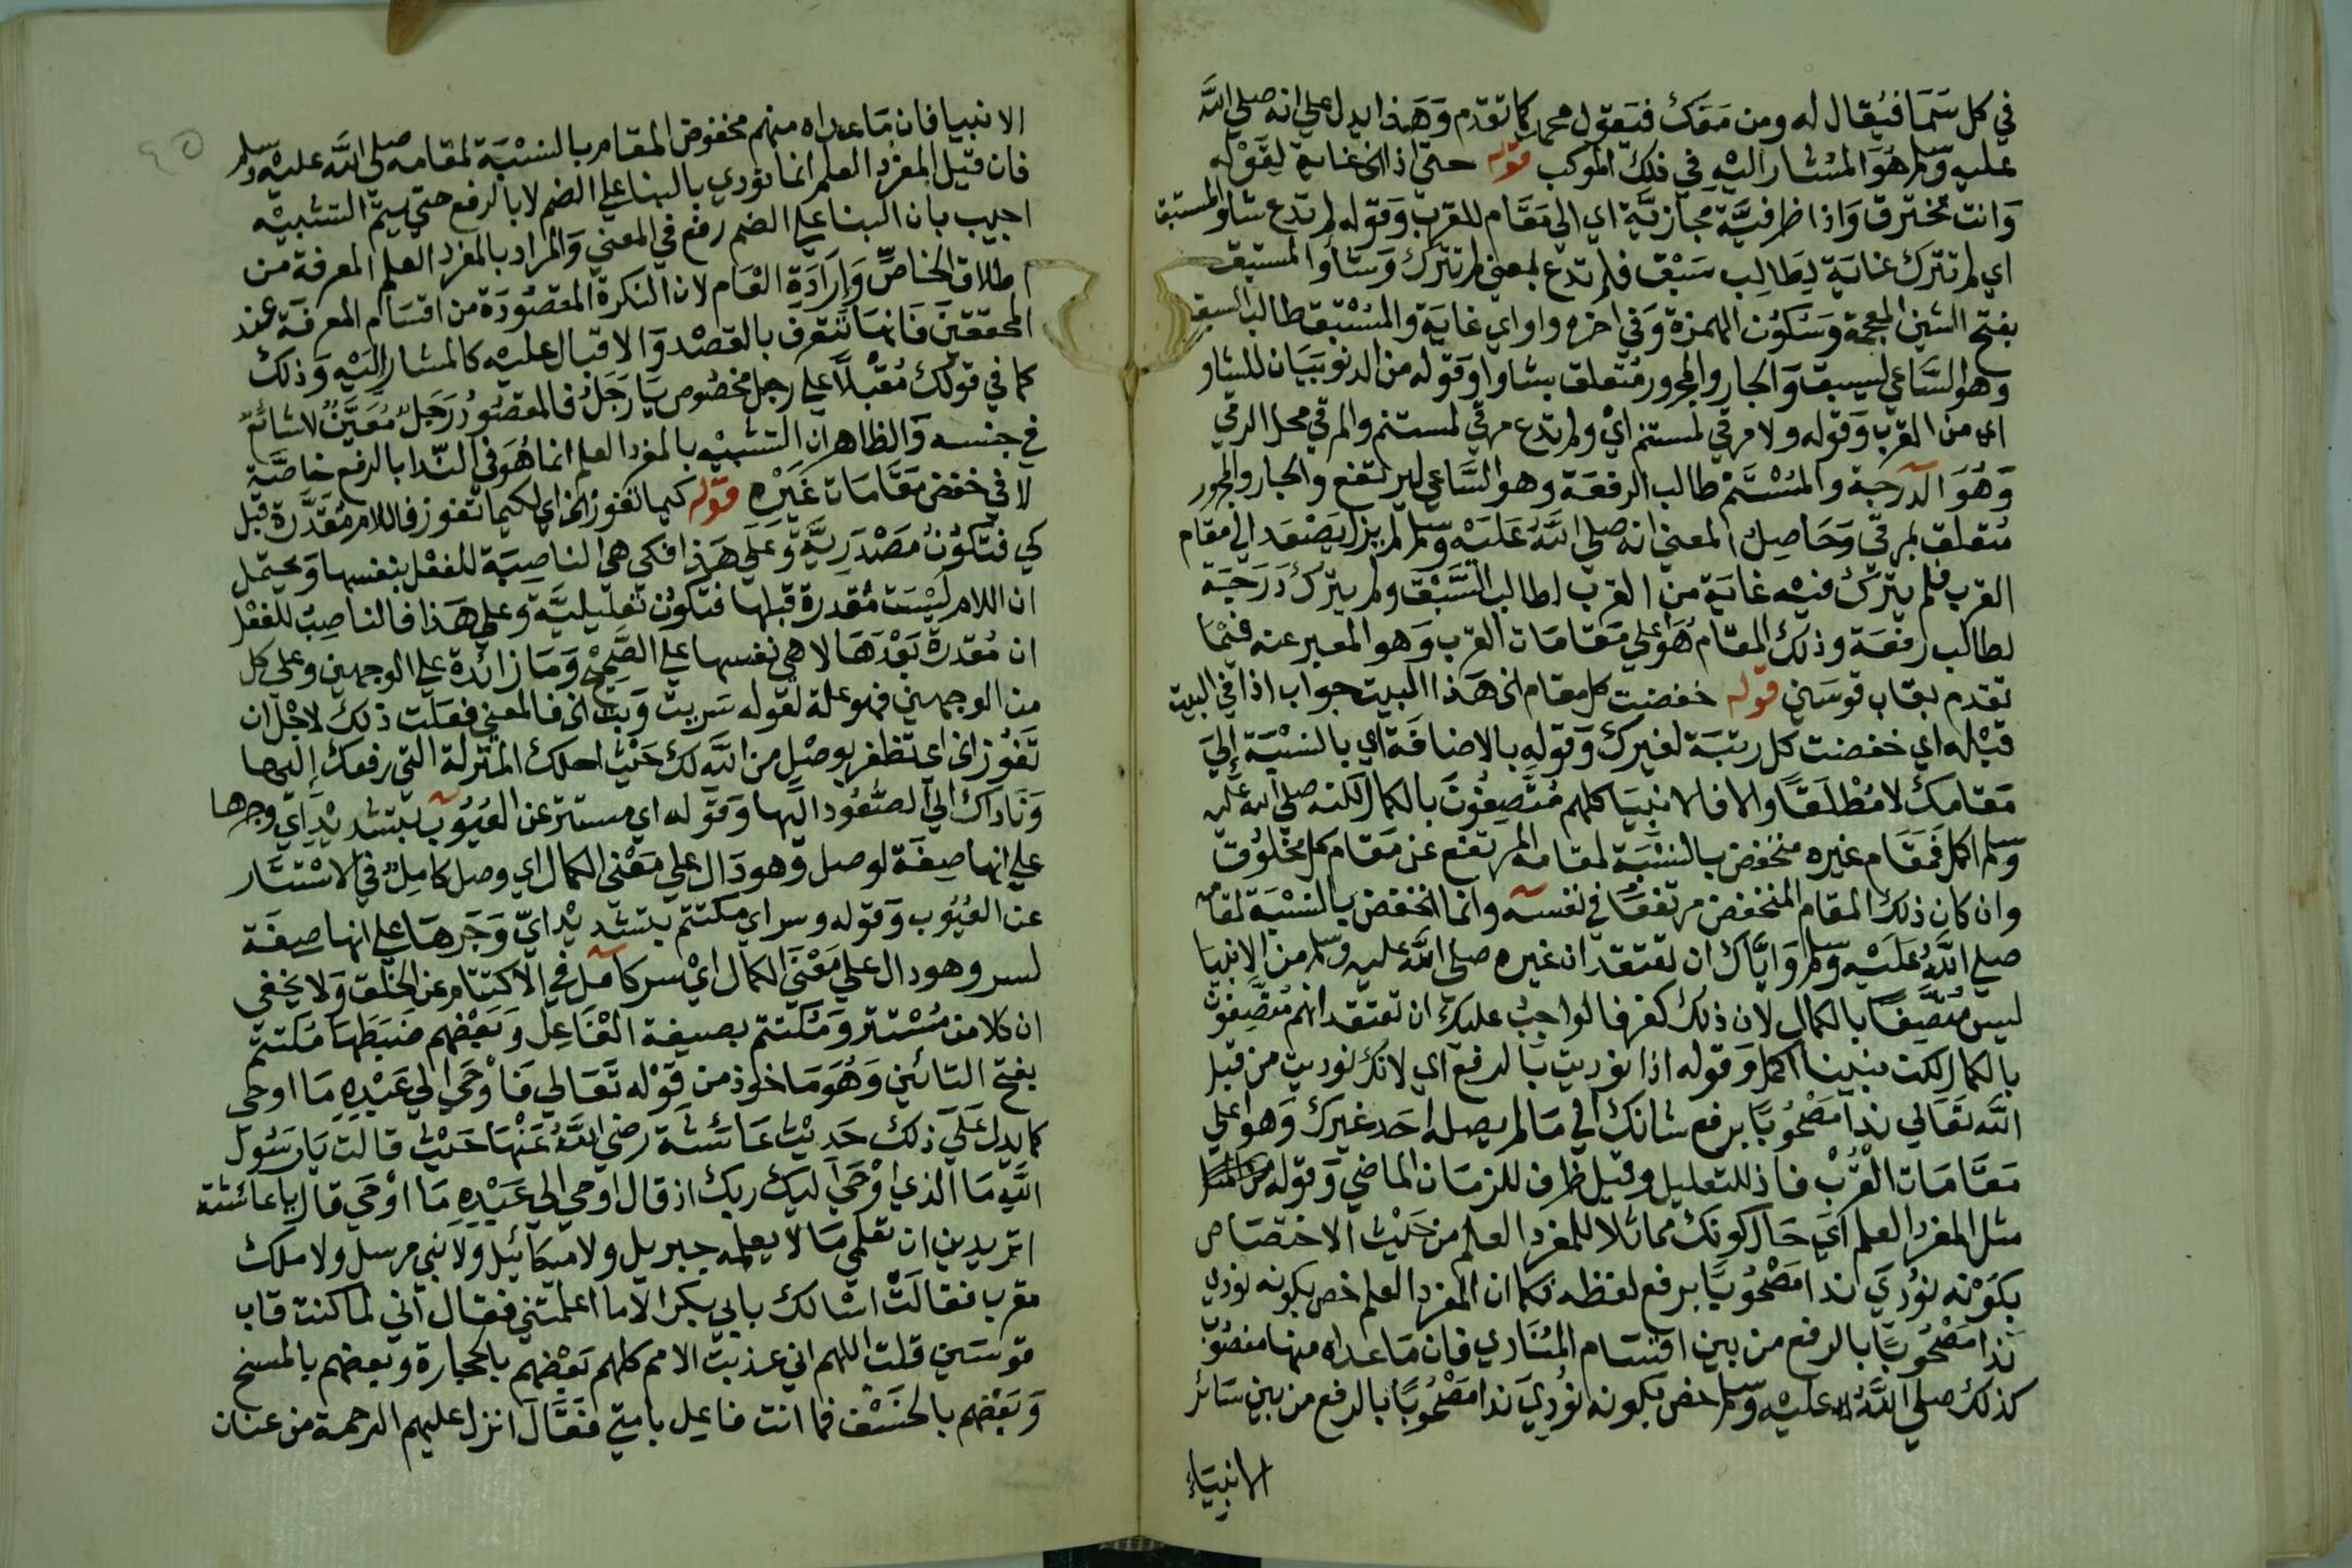 في كل سما فيقال له ومن معك فيقول محمد كما تقدم وهذا يدل على انه صلى الله
عليه وسلم هو المشار اليه في ذلك الموكب قوله حتى اذا الخ غاية لقوله
وانت تخترق واذا ظرفية مجازية اي الى مقام للقرب وقوله لم تدع شاوا لمستبق
اي لم تترك غاية لطالب سبق فلم تدع بمعنى لم تترك وشاوا لمستبق
بفتح الشين المعجمة وسكون الهمزة وفي اخره واو اي غاية والمستبق طالب السبق
وهو الساعي ليسبق والجار والمجرور متعلق بشاوا وقوله من الدنو بيان للشاو
اي من القرب وقوله ولا مرقى لمستنم اي ولم تدع مرقى لمستنم والمرقى محل الرقي
وهو الدرجة والمستنم طالب الرفعة وهو الساعي ليرتفع والجار والمجرور
متعلق بمرقى وحاصل المعنى انه صلى الله عليه وسلم لم يزل يصعد الى مقام
القرب فلم يترك فيه غاية من القرب لطالب السبق ولم يترك درجة
لطالب رفعة وذلك المقام هو اعلى مقامات القرب وهو المعبر عنه فيما
تقدم بقاب قوسين قوله خفضت كل مقام الخ هذا البيت جواب اذا في البيت
قبله اي خفضت كل رتبة لغيرك وقوله بالاضافة اي بالنسبة الى
مقامك لا مطلقا والا فالانبيا كلهم متصفون بالكمال لكنه صلى الله عليه
وسلم اكمل فمقام غيره منخفض بالنسبة لمقامه المرتفع عن مقام كل مخلوق
وان كان ذلك المقام المنخفض مرتفعا في نفسه وانما انخفض بالنسبة لمقامه
صلى الله عليه وسلم واياك ان تعتقد ان غيره صلى الله عليه وسلم من الانبيا
ليس متصفا بالكمال لان ذلك كفر فالواجب عليك ان تعتقد انهم متصفون
بالكمال لكن نبينا اكمل وقوله اذ نوديت بالرفع اي لانك نوديت من قبل
الله تعالى ندا مصحوبا برفع شانك الى ما لم يصله احد غيرك وهو اعلى
مقامات القرب فاذ للتعليل وقيل ظرف للزمان الماضي وقوله
مثل المفرد العلم اي حال كونك مماثلا للمفرد العلم من حيث الاختصاص
بكونه نودي ندا مصحوبا برفع لفظه فكما ان المفرد العلم خص بكونه نودي
ندا مصحوبا بالرفع من بين اقسام المنادى فان ما عداه منها منصوب
كذلك صلى الله عليه وسلم خص بكونه نودي ندا مصحوبا بالرفع من بين سائر
الانبياء
الانبيا فان ما عداه منهم مخفوض المقام بالنسبة لمقامه صلى الله عليه وسلم
فان قيل المفرد العلم انما نودي بالبنا على الضم لا بالرفع حتى يتم التشبيه
اجيب بان البنا على الضم رفع في المعنى والمراد بالمفرد العلم المعرفة من
اطلاق الخاص وارادة العام لان النكرة المقصودة من اقسام المعرفة عند
المحققين فانها تتعرف بالقصد والاقبال عليه كالمشار اليه وذلك
كما في قولك مقبلا على رجل مخصوص يا رجل فالمقصود رجل معين لا شائع
في جنسه والظاهر ان التشبيه بالمفرد العلم انما هو في الندا بالرفع خاصة
لا في خفض مقامات غيره قوله كيما تفوز الخ اي لكيما تفوز فاللام مقدرة قبل
كي فتكون مصدرية وعلى هذا فكي هي الناصبة للفعل بنفسها ويحتمل
ان اللام ليست مقدرة قبلها فتكون تعليلية وعلى هذا فالناصب للفعل
ان مقدرة بعدها لا هي نفسها على الصحيح وما زائدة على الوجهين وعلى كل
من الوجهين فهو علة لقوله سريت وبت الخ فالمعنى فعلت ذلك لاجل ان
تفوز الخ اي تظفر بوصل من الله لك حيث احلك المنزلة التي رفعك اليها
وناداك الى الصعود اليها وقوله اي مستتر عن العيوب بتشديد اي وجرها
على انها صفة لوصل وهو دال على معنى الكمال اي وصل كامل في الاستتار
عن العيوب وقوله وسر اي مكتتم بتشديد اي وجرها على انها صفة
لسر وهو دال على معنى الكمال اي سر كامل في الاكتتام عن الخلق ولا يخفى
ان كلا من مستتر ومكتتم بصيغة الفاعل وبعضهم ضبطها مكتتم
بفتح التائين وهو ماخوذ من قوله تعالى فاوحى الى عبده ما اوحى
كما يدل على ذلك حديث عائشة رضي الله عنها حيث قالت يا رسول
الله ما الذي اوحى اليك ربك اذ قال اوحى الى عبده ما اوحى قال يا عائشة
اتريدين ان تعلمي ما لا يعلمه جبريل ولا ميكائيل ولا نبي مرسل ولا ملك
مقرب فقالت اسالك بابي بكر الا ما اعلمتني فقال اني لما كنت قاب
قوسين قلت اللهم اني عذبت الامم كلهم بعضهم بالحجارة وبعضهم بالمسخ
وبعضهم بالخسف فما انت فاعل بامتي فقال انزل عليهم الرحمة من عنان